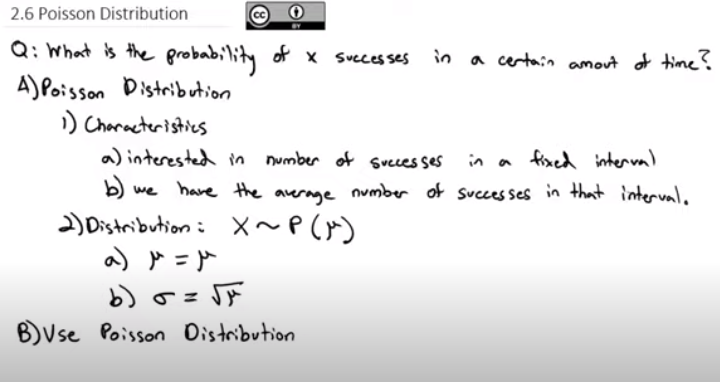 2.6 Poisson Distribution
cc BY
Q: What is the probability of x successes in a certain amout of time?
A) Poisson Distribution
1) Characteristics
a) interested in number of successes in a fixed interval
b) we have the average number of successes in that interval.
2) Distribution: X ~ P(μ)
a) μ = μ
b) σ = √μ
B) Use Poisson Distribution